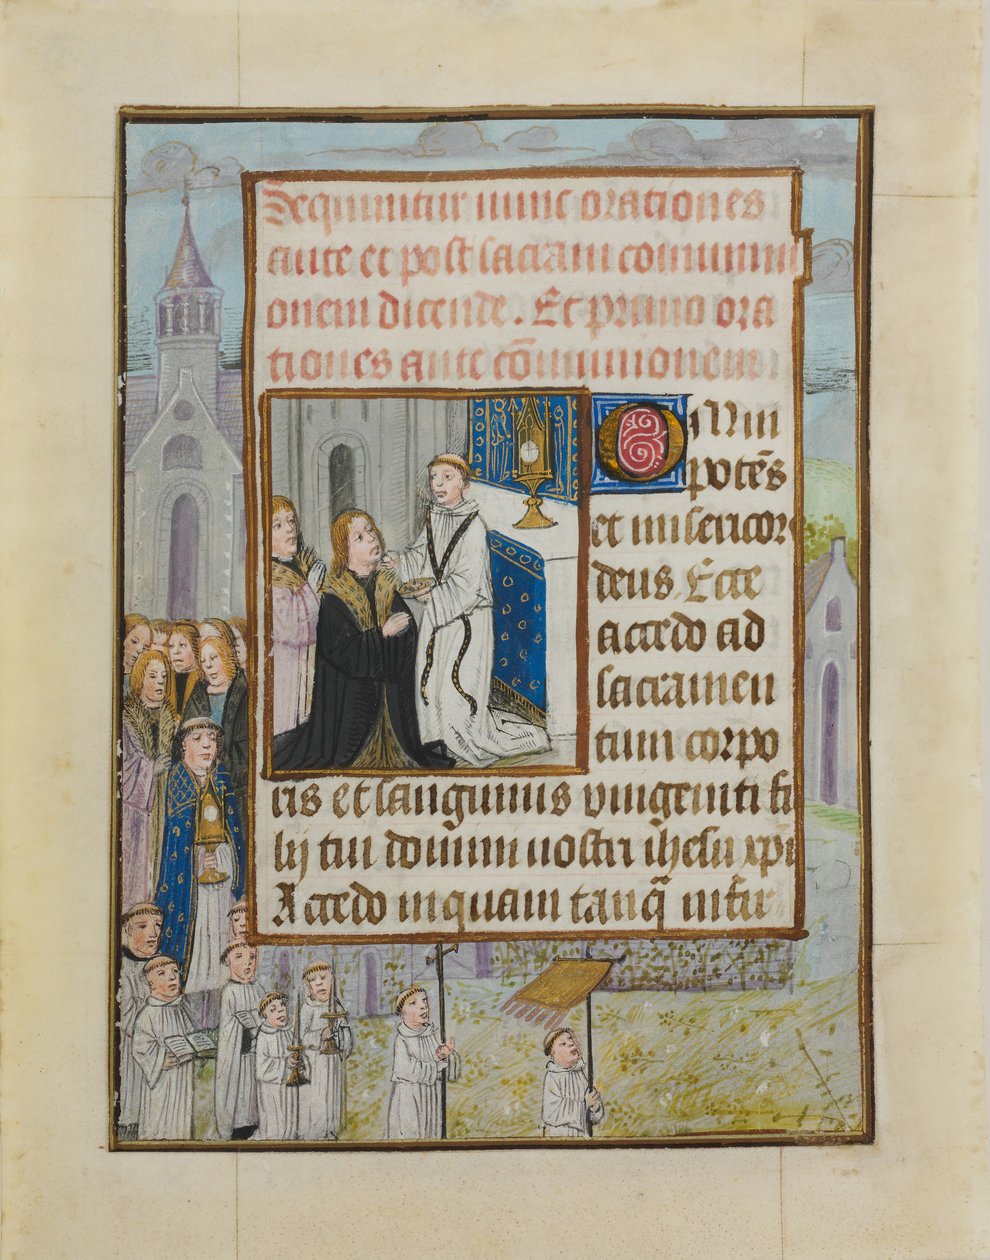 Sequuntur nunc orationes
ante et post sacram communi
onem dicende. Et primo ora
tiones ante cōmunionem
OMni
potēs
et misericor
deus. Ecce
accedo ad
sacramen
tum corpo
ris et sanguinis vnigeniti fi
lij tui domini nostri ihesu xpi
Accedo inquam tanq̄ infir